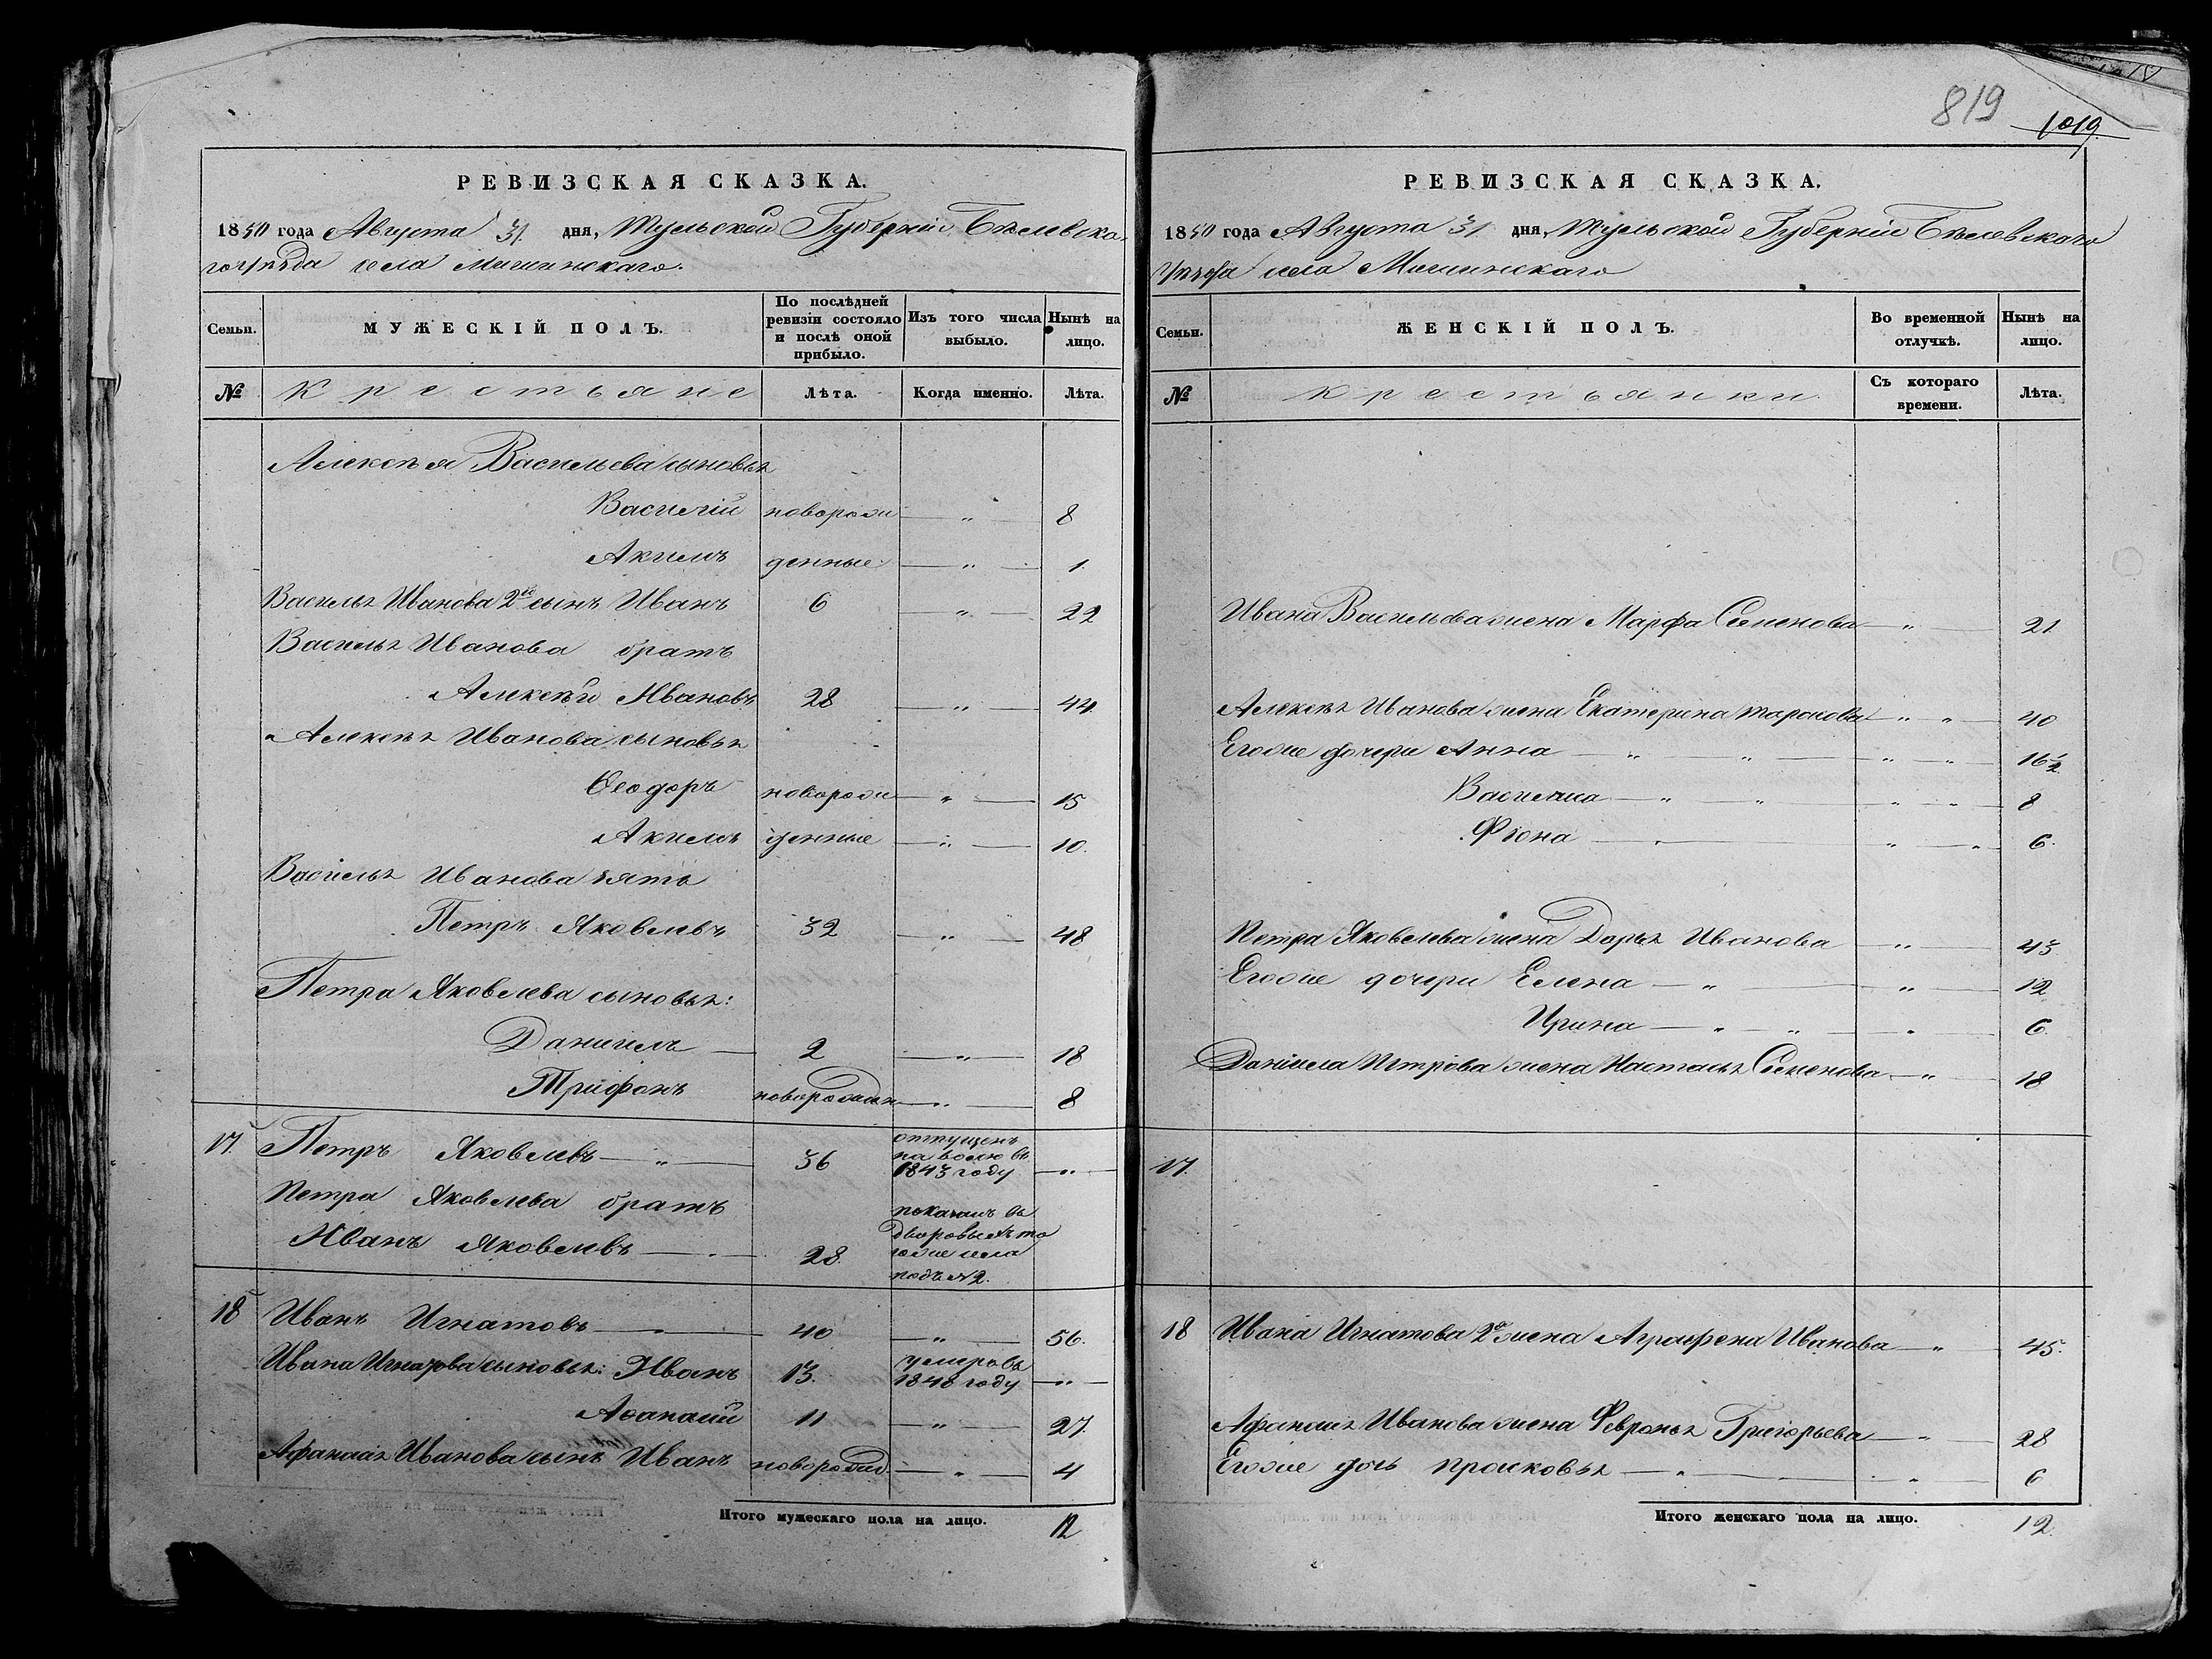 819
1019.
РЕВИЗСКАЯ СКАЗКА.
1850 года Августа 31 дня, Тульской Губерніи, Бѣлевска-
го уѣзда села Мишинскаго.
Семьи.
МУЖЕСКІЙ ПОЛЪ.
По послѣдней ревизіи состояло и послѣ оной прибыло.
Изъ того числа выбыло.
Нынѣ на лицо.
№
Крестьяне
Лѣта.
Когда именно.
Лѣта.
Алексѣя Васильева сыновья
Василій новорож — „ — 8
Акимъ денные — „ — 1
Василья Иванова 2й сынъ Иванъ 6 — „ — 22
Василья Иванова братъ
Алексѣй Ивановъ 28 — „ — 44
Алексѣя Иванова сыновья
Ѳеодоръ новорож — „ — 15
Акимъ денные — „ — 10.
Василья Иванова зять
Петръ Яковлевъ 32 — „ — 48
Петра Яковлева сыновья:
Даниилъ — 2 — „ — 18
Трифонъ новорожден — „ — 8
17. Петръ Яковлевъ — „ — 36 отпущенъ на волю въ 1843 году — „ —
Петра Яковлева братъ
Иванъ Яковлевъ — „ — 28. показанъ въ дворовыхъ то гоже села подъ № 2.
18 Иванъ Игнатовъ — „ — 40 — „ — 56.
Ивана Игнатова сыновья: Иванъ 13. умеръ въ 1848 году — „ —
Аѳанасій 11 — „ — 27.
Афанасія Иванова сынъ Иванъ новорожд. — „ — 4
Итого мужескаго пола на лицо. 12
РЕВИЗСКАЯ СКАЗКА.
1850 года Августа 31 дня, Тульской Губерніи Бѣлевскаго
уѣзда села Мишинскаго
Семьи.
ЖЕНСКІЙ ПОЛЪ.
Во временной отлучкѣ.
Нынѣ на лицо.
№
Крестьянки
Съ котораго времени.
Лѣта.
Ивана Васильева жена Марфа Семенова — „ — 21
Алексѣя Иванова жена Екатерина Тарасова — „ „ — 40
Егоже дочери Анна — „ — „ — „ „ — 16½
Василиса — „ „ — „ „ — 8
Фіона — „ — „ „ 6.
Петра Яковлева жена Дарья Иванова — „ — 43
Егоже дочери Елена — „ — „ — 12
Ирина — „ — „ — „ — 6
Даніила Петрова жена Настасья Семенова — „ — 18
17.
18 Ивана Игнатова 2я жена Аграфена Иванова — „ — 45.
Афанасія Иванова жена Февронья Григорьева — „ — 28
Егоже дочь Прасковья — „ — „ — 6
Итого женскаго пола на лицо. 12.